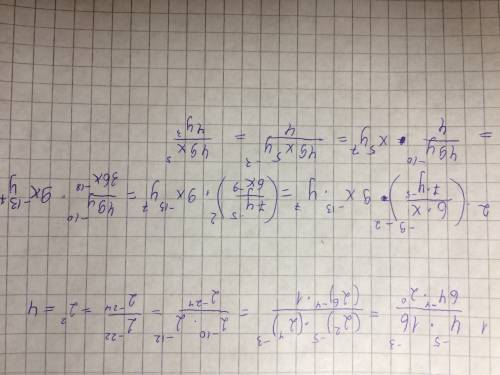 1. (4⁻⁵ · 16⁻³)/(64⁻⁴ · 2⁰) = ((2²)⁻⁵ · (2⁴)⁻³)/((2⁶)⁻⁴ · 1) = (2⁻¹⁰ · 2⁻¹²)/(2⁻²⁴) = 2⁻²²/2⁻²⁴ = 2² = 4
2. ((6 · x⁻⁹)/(7y⁻⁵))⁻² · 9x⁻¹³ · y⁷ = ((7y⁻⁵)/(6x⁻⁹))² · 9x⁻¹³y⁷ = (49y⁻¹⁰)/(36x⁻¹⁸) · 9x⁻¹³y⁷
= (49y⁻¹⁰)/4 · x⁵y⁷ = (49x⁵y⁻³)/4 = (49x⁵)/(4y³)